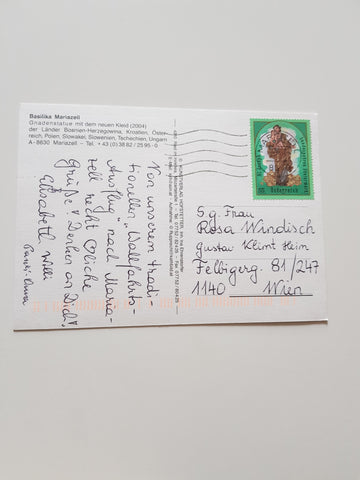 Basilika Mariazell
Gnadenstatue mit dem neuen Kleid (2004)
der Länder Bosnien-Herzegowina, Kroatien, Öster-
reich, Polen, Slowakei, Slowenien, Tschechien, Ungarn
A - 8630 Mariazell - Tel. + 43 (0) 38 82 / 25 95 - 0
Von unserem tradi-
tionellen „Wallfahrts-
Ausflug" nach Maria-
zell recht herzliche
Grüße! Denken an Dich!
Elisabeth, Willi
Österreich
S.g. Frau
Rosa Windisch
Gustav Klimt Heim
Felbigerg. 81/247
1140 Wien